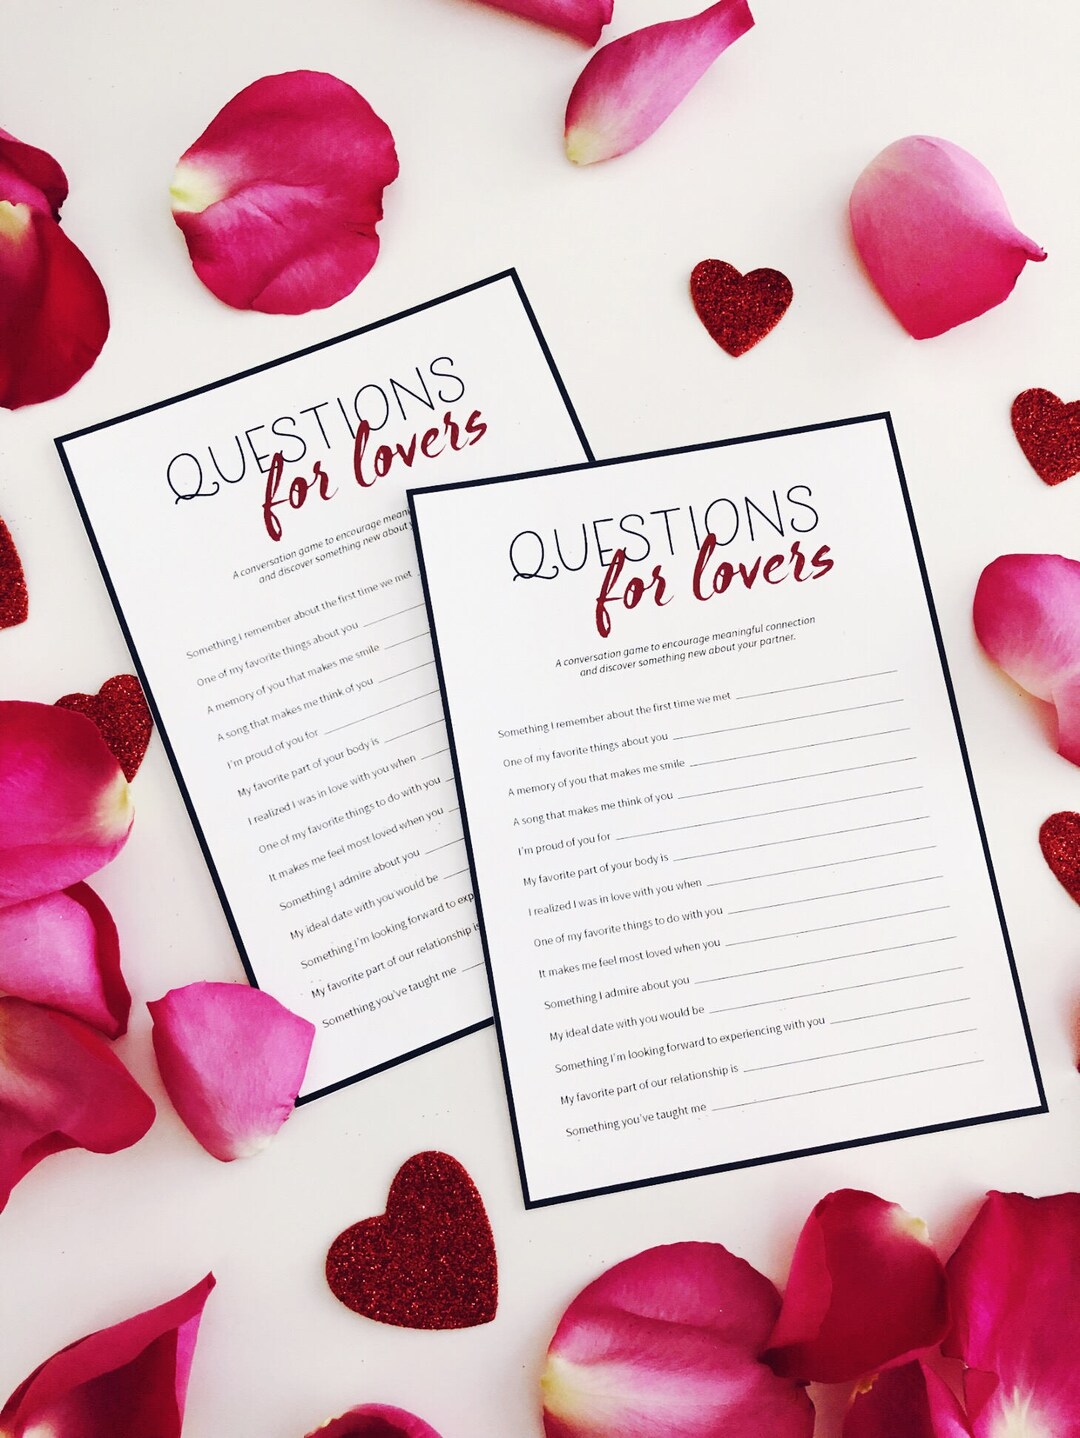 QUESTIONS
for lovers
A conversation game to encourage mean
and discover something new about
Something I remember about the first time we met
One of my favorite things about you
A memory of you that makes me smile
A song that makes me think of you
I'm proud of you for
My favorite part of your body is
I realized I was in love with you when
One of my favorite things to do with you
It makes me feel most loved when you
Something I admire about you
My ideal date with you would be
Something I'm looking forward to exp
My favorite part of our relationship is
Something you've taught me
QUESTIONS
for lovers
A conversation game to encourage meaningful connection
and discover something new about your partner.
Something I remember about the first time we met
One of my favorite things about you
A memory of you that makes me smile
A song that makes me think of you
I'm proud of you for
My favorite part of your body is
I realized I was in love with you when
One of my favorite things to do with you
It makes me feel most loved when you
Something I admire about you
My ideal date with you would be
Something I'm looking forward to experiencing with you
My favorite part of our relationship is
Something you've taught me